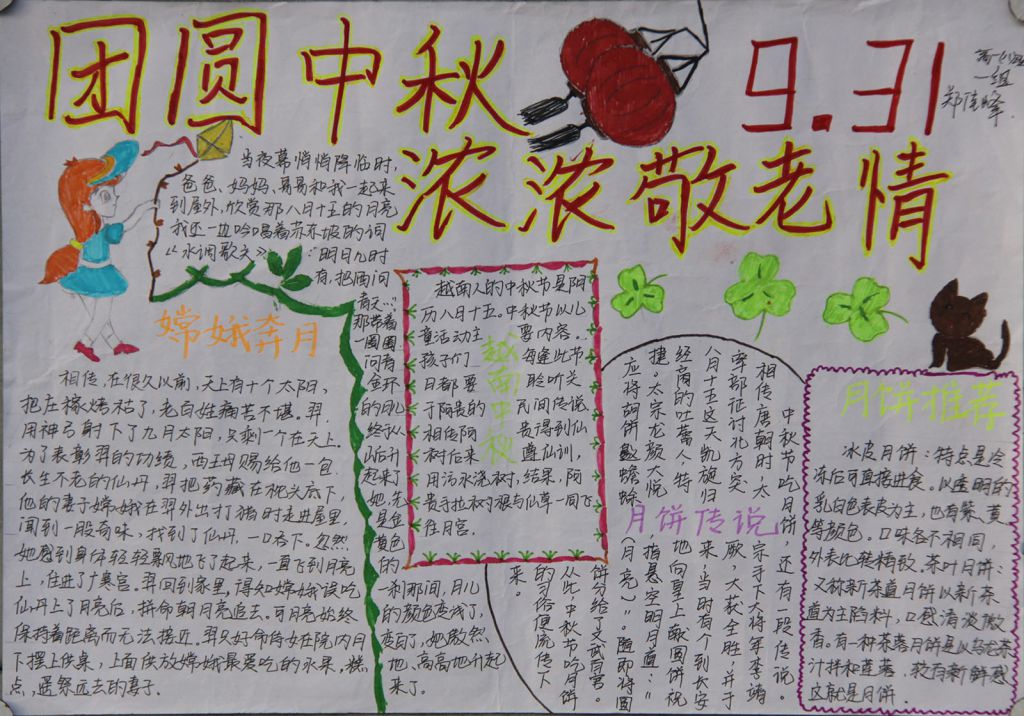 团圆中秋
浓浓敬老情
9.31
一组
当夜幕悄悄降临时,
爸爸、妈妈、哥哥和我一起来
到屋外,欣赏那八月十五的月亮
我还一边吟唱着苏东坡的词
《水调歌头》:"明日几时
有,把酒问
青天…"
那带着
一圈圈
问有
金环
的月儿
终于从
山后升
起来了
她先
是金
黄色
的
一刹那间,月儿
的颜色变浅了,
变白了,她傲然
地、高高地升起
来了。
嫦娥奔月
相传,在很久以前,天上有十个太阳,
把庄稼烤枯了,老百姓痛苦不堪。羿
用神弓射下了九月太阳,只剩一个在天上。
为了表彰羿的功绩,西王母赐给他一包
长生不老的仙丹,羿把药藏在枕头底下,
他的妻子嫦娥在羿外出打猎时走进屋里,
闻到一股奇味,找到了仙丹,一口吞下。忽然
她感到身体轻轻飘飘地飞了起来,一直飞到月亮
上,住进了广寒宫。羿回到家里,得知嫦娥误吃
仙丹上了月亮后,拼命朝月亮追去。可月亮始终
保持着距离而无法接近。羿只好命侍女在院内月
下摆上供桌,上面供放嫦娥最爱吃的水果、糕
点,遥祭远去的妻子。
越南中秋
越南人的中秋节是阴
历八月十五。中秋节以儿
童活动主要内容..
孩子们每逢此节
日都要聆听关
于阿贵的民间传说
相传阿贵得到仙
树后来遵仙训,
用污水浇树,结果,阿
贵手拉树根与仙草一同飞
往月宫。
月饼传说
中秋节吃月饼,还有一段传说。
相传唐朝时,太宗手下大将军李靖
率部征讨北方突厥,大获全胜,并于
八月十五这天凯旋归来,当时有个到长安
经商的吐蕃人,特地向皇上献圆饼祝
捷。太宗龙颜大悦,指悬空明月道:"
应将胡饼邀蟾蜍(月亮)"。随即将圆
饼分给了文武百官。
从此,中秋节吃月饼
的习俗便流传下
来。
月饼推荐
冰皮月饼:特点是冷
冻后可直接进食。以透明的
乳白色表皮为主,也有紫、黄
等颜色。口味各不相同,
外表比较精致。茶叶月饼:
又称新茶道月饼以新茶
道为主陷料,口感清淡微
香。有一种茶蓉月饼是以乌龙茶
汁拌和莲蓉,较有新鲜感
这就是月饼。